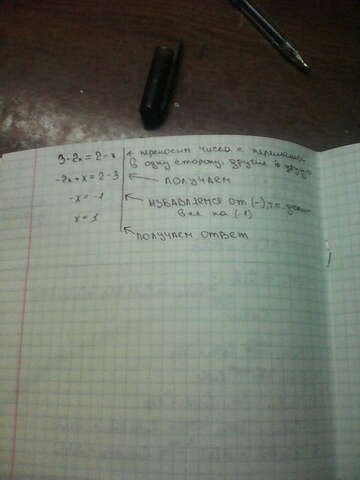 3-2x=2-x
← переносим числа с переменной
в одну сторону, другие в другую
-2x+x=2-3
← получаем
-x=-1
← избавляемся от (-), т.е. делим
все на (-1)
x=1
← получаем ответ